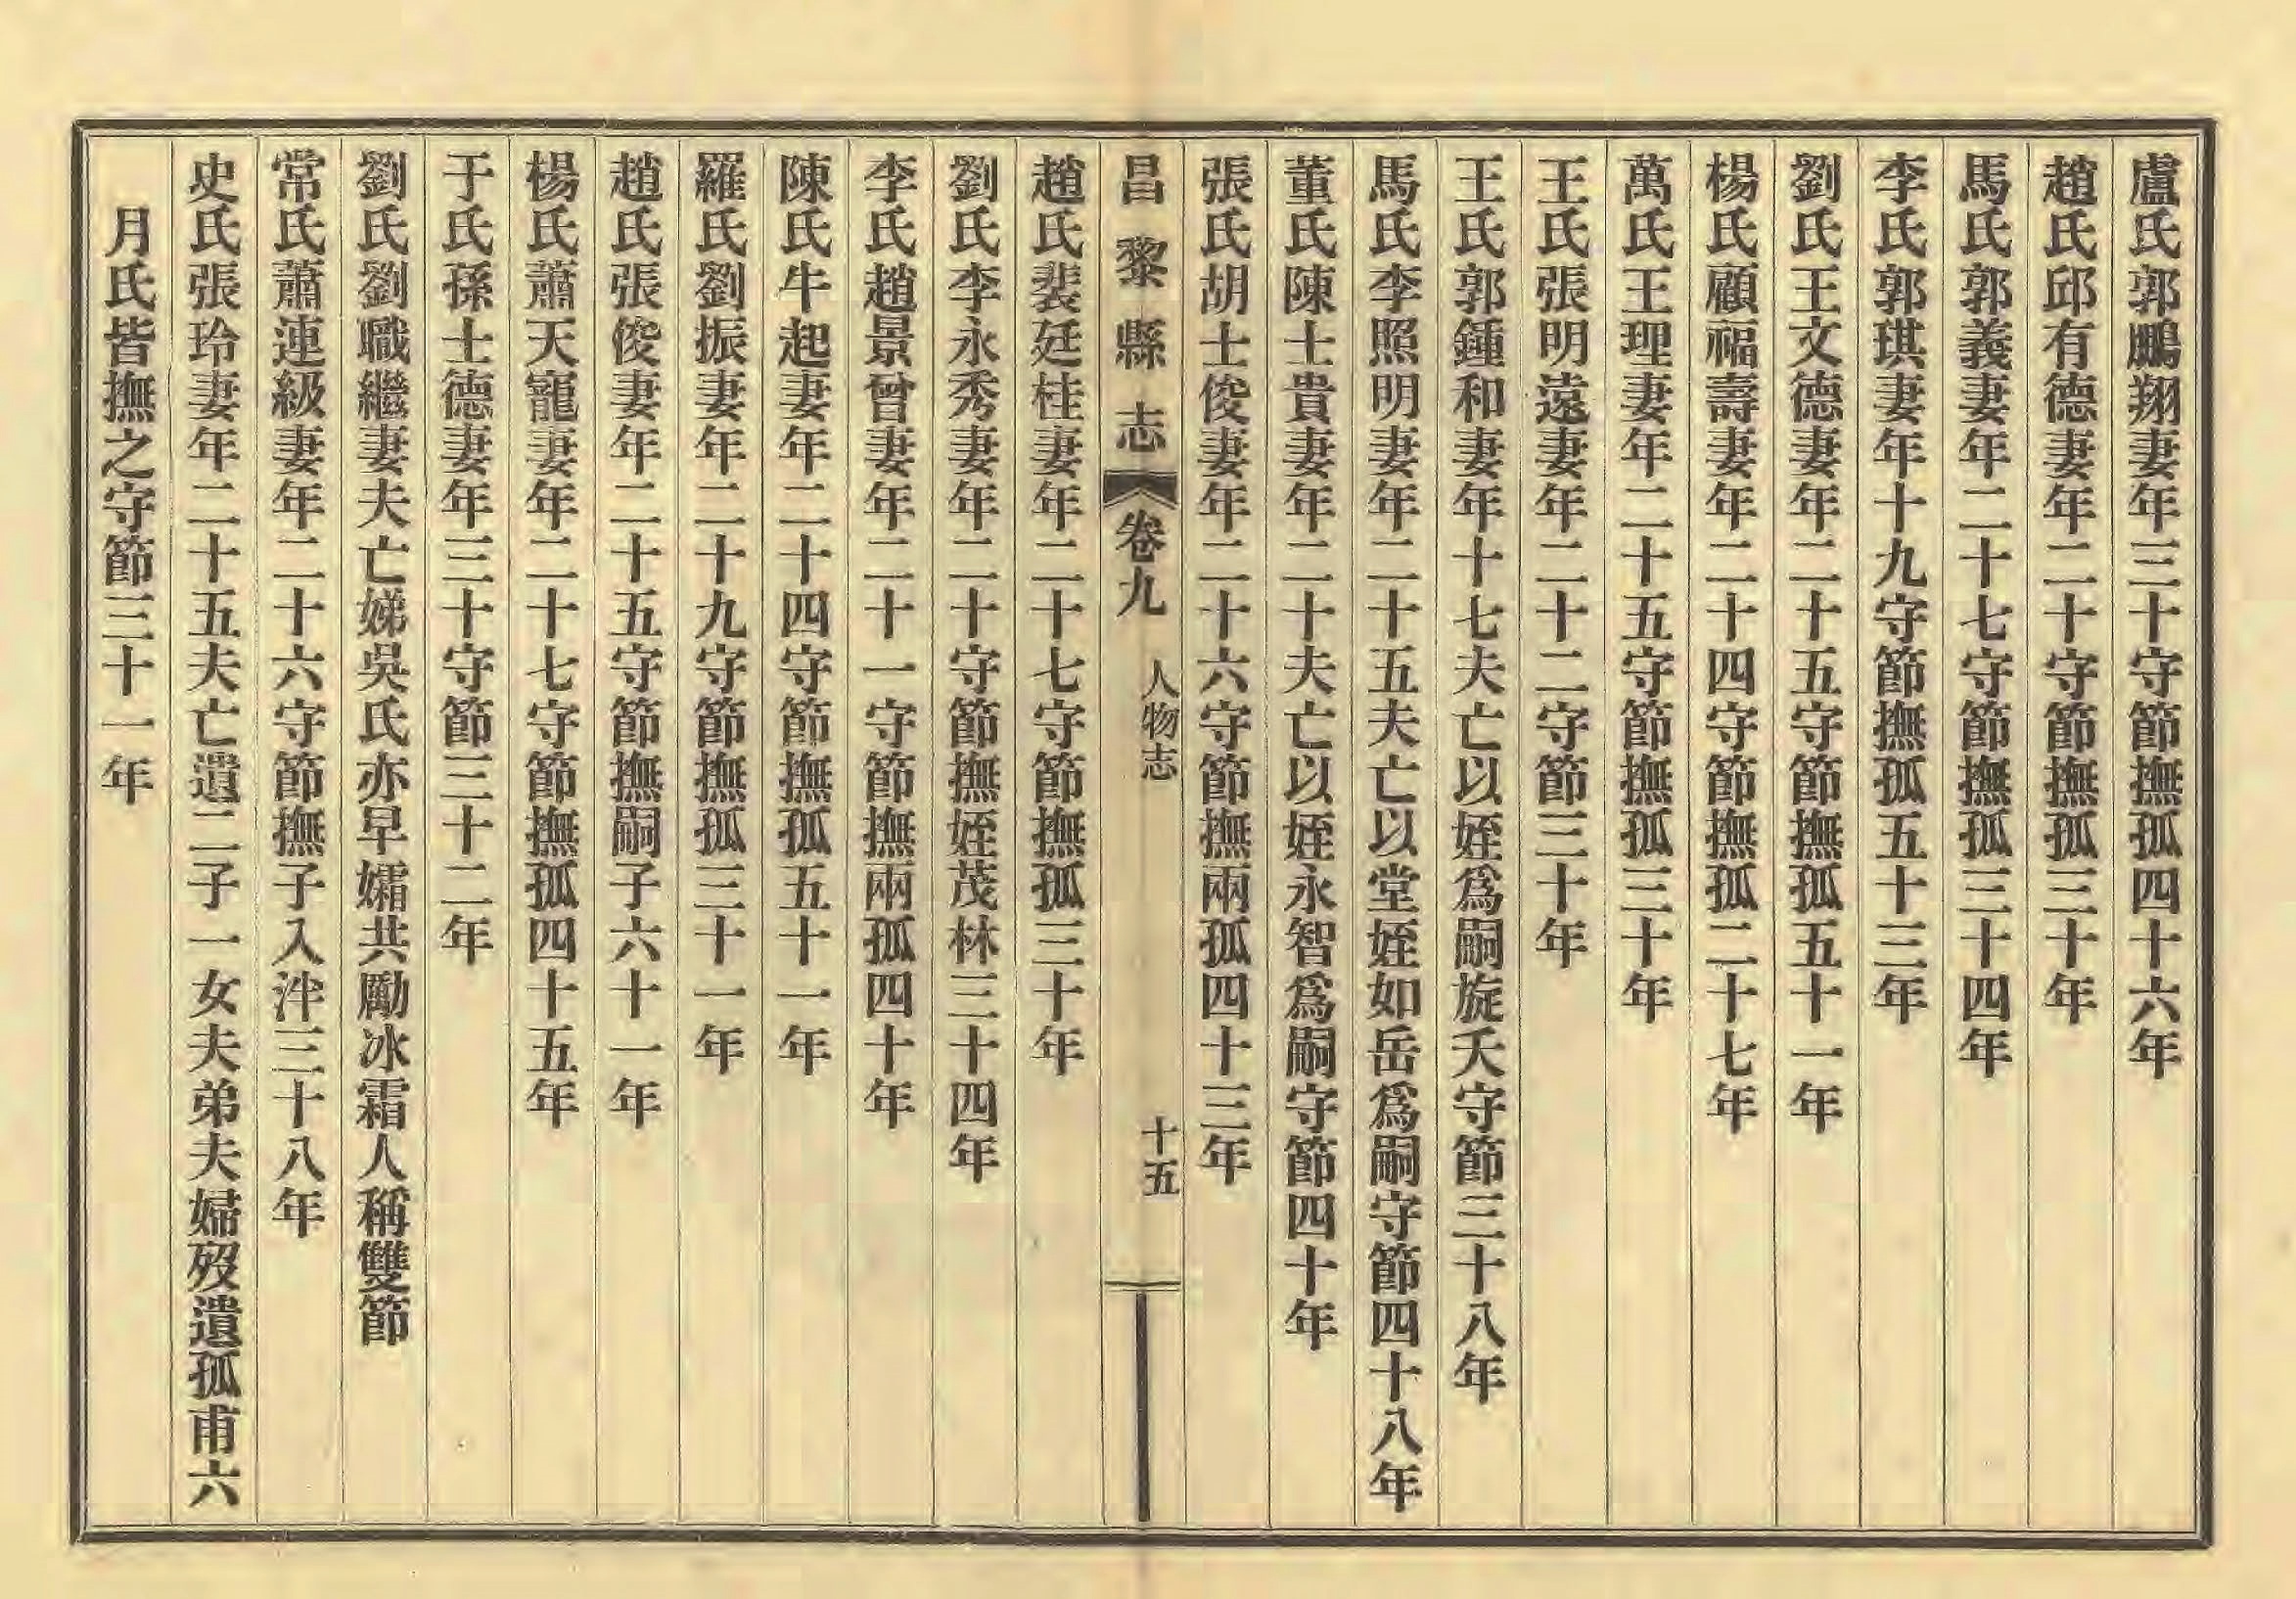 盧氏郭鵬翔妻年三十守節撫孤四十六年
趙氏邱有德妻年二十守節撫孤三十年
馬氏郭義妻年二十七守節撫孤三十四年
李氏郭琪妻年十九守節撫孤五十三年
劉氏王文德妻年二十五守節撫孤五十一年
楊氏顧福壽妻年二十四守節撫孤二十七年
萬氏王理妻年二十五守節撫孤三十年
王氏張明遠妻年二十二守節三十年
王氏郭鍾和妻年十七夫亡以姪爲嗣旋夭守節三十八年
馬氏李照明妻年二十五夫亡以堂姪如岳爲嗣守節四十八年
董氏陳士貴妻年二十夫亡以姪永智爲嗣守節四十年
張氏胡士俊妻年二十六守節撫兩孤四十三年
昌黎縣志 卷九 人物志 十五
趙氏裴廷桂妻年二十七守節撫孤三十年
劉氏李永秀妻年二十守節撫姪茂林三十四年
李氏趙景曾妻年二十一守節撫兩孤四十年
陳氏牛起妻年二十四守節撫孤五十一年
羅氏劉振妻年二十九守節撫孤三十一年
趙氏張俊妻年二十五守節撫嗣子六十一年
楊氏蕭天寵妻年二十七守節撫孤四十五年
于氏孫士德妻年三十守節三十二年
劉氏劉職繼妻夫亡娣吳氏亦早孀共勵冰霜人稱雙節
常氏蕭連級妻年二十六守節撫子入泮三十八年
史氏張玲妻年二十五夫亡遺二子一女夫弟夫婦歿遺孤甫六
月氏皆撫之守節三十一年